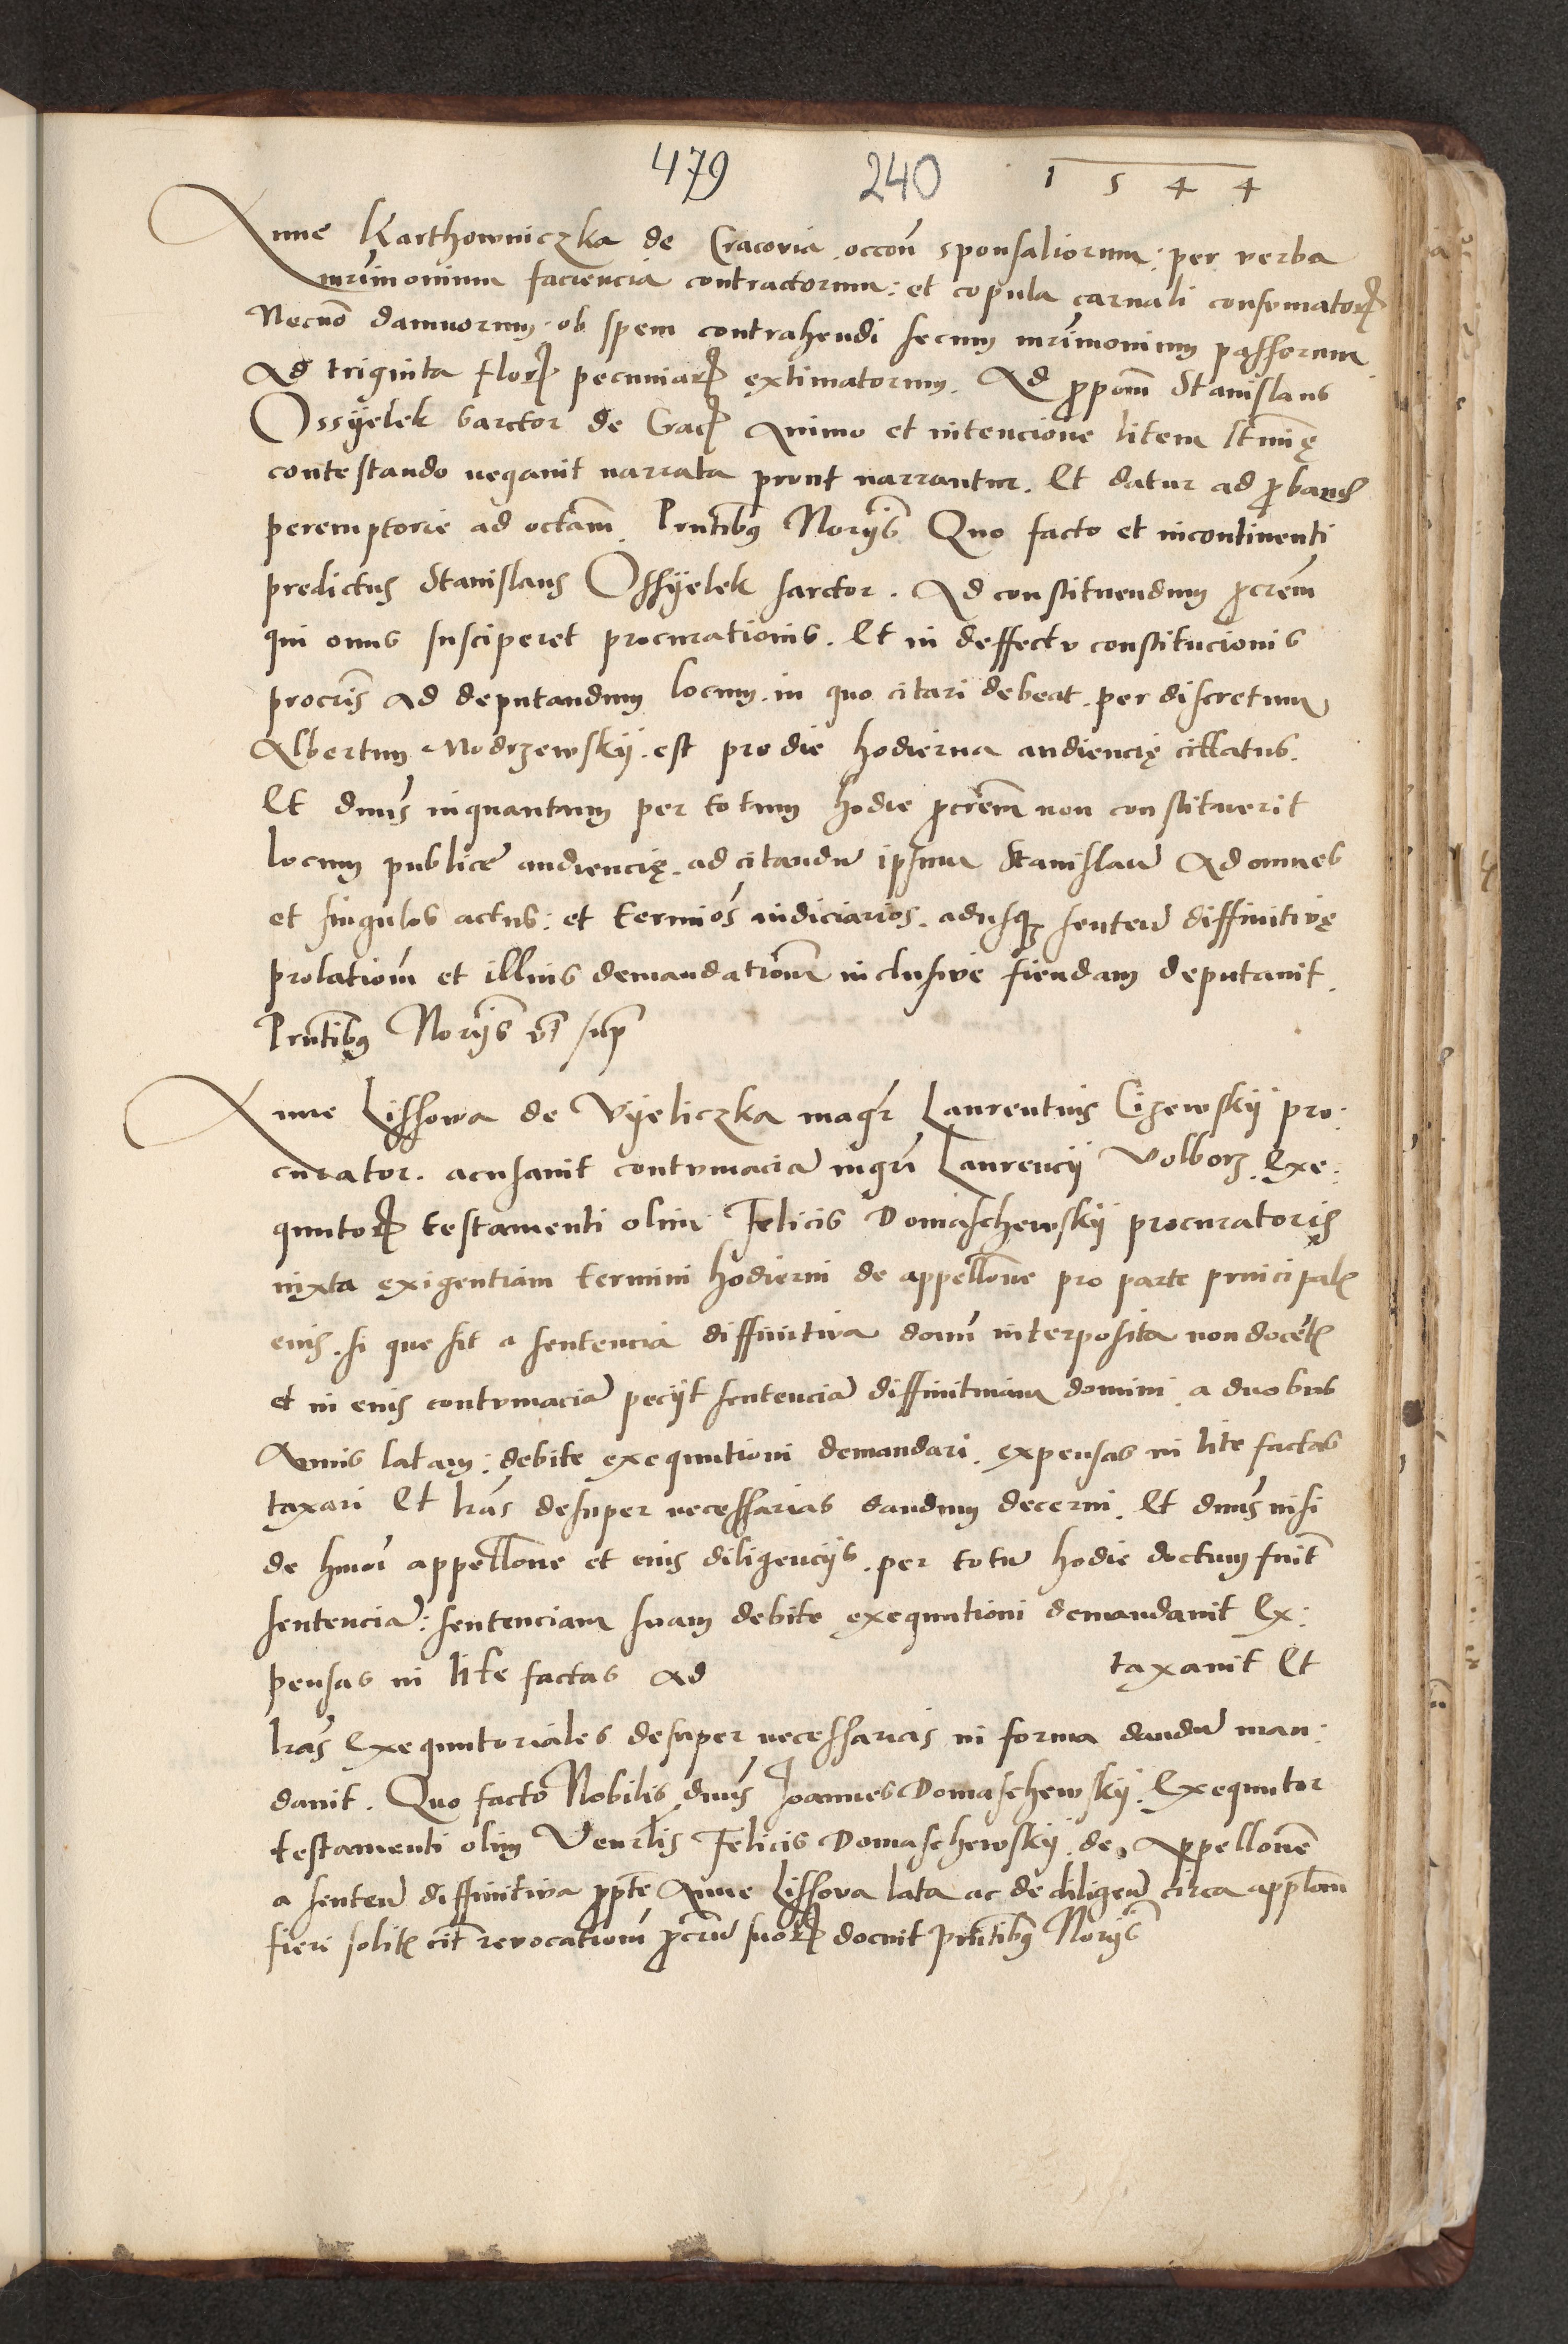 479 240 1544
Anne Karthowniczka de Cracovia occoñ sponsaliorum: per verba
mrimonium faciencia contractorum: et copula carnali consumatorꝝ
Necnõ damnorum ob spem contrahendi secum mrimonium passorum
Ad triginta florꝝ pecuniarꝝ extimatorum. Ad ꝓpoñ Stanislaus
Ossyelek sarctor de Crac Animo et intencione litem
contestando negauit narrata prout narrantur. Et datur ad ꝓband
peremptorie ad octam̃. Prñtibꝫ Norijs Quo facto et incontinenti
predictus Stanislaus Ossyelek sarctor. Ad constituendum ꝓcrem̃
qui onus susciperet procurationis. Et in deffectu constitucionis
procris̃ Ad deputandum locum in quo citari debeat per discretum
Albertum Modrzewskij est pro die hodierna audiencię cittatus.
Et dnũs inquantum per totum hodie ꝓcrem̃ non constituerit
locum publicę audiencię ad citandũ ipsum Stanislaũ Ad omnes
et singulos actus: et termiõs iudiciarios. adusqꝫ senteñ diffinitivę
prolationm̃ et illius demandationem̃ inclusive fiendam deputauit.
Prñtibꝫ Norijs vt̃ sup̃
Anne Lissowa de Vyeliczka magr̃ Laurentius Cizewskij pro:
curator. acusauit contumaciã mgrĩ Laurencij Volborz Exe:
quutorꝝ testamenti olim Felicis Domaschewskij procuratoris
iuxta exigentiam termini hodierni de appellõne pro parte principal
eius. si que sit a sentencia diffinitiva domĩ interposita non docent
et in eius contumaciã pecijt sentenciã diffinitiuam domini a duobus
Annis latam: debite exequutioni demandari. expensas in lite factas
taxari Et lrãs desuper necessarias dandum decerni. Et dnũs nisi
de hmoĩ appellõne et eius diligencijs per totũ hodie doctum fuit̃
sentenciã: sentenciam suam debite exequutioni demandauit Ex:
pensas in lite factas ad taxauit Et
lrãs Exequutoriales desuper necessarias in forma dandũ man:
dauit. Quo facto Nobilis dnũs Joannes Domaschewskij Exequutor
testamenti olim Venrlis Felicis Domaschewskij de Appellonẽ
a senteñ diffinitiva Anne Lissova lata ac de diligeñ circa applõm
fieri solit cit̃ revocationm̃ ꝓcrũ suorꝝ docuit Prñtibꝫ Norijs